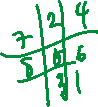 7 2 4
5 6 6
3 1